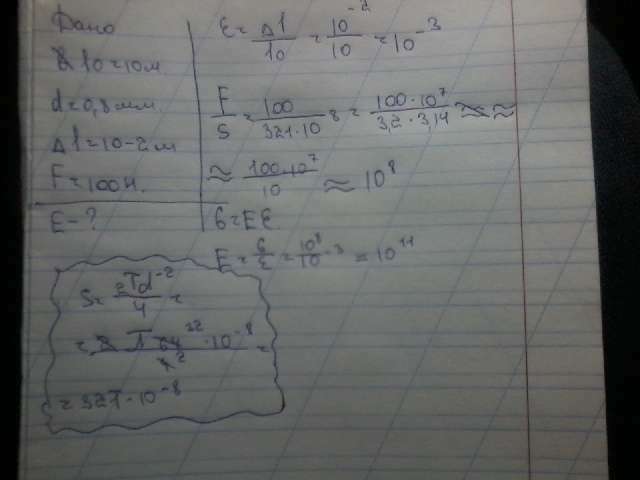 Дано
l0=10м
d=0,8мм
Δl=10-2м
F=100Н.
E-?
ε=Δl/l0=10^-2/10=10^-3
F/S=100/32π·10^-8=100·10^7/3,2·3,14≈
≈100·10^7/10≈10^8
б=Eε
E=б/ε=10^8/10^-3=10^11
S=2πd^-2/4=
=·10^-8=
=32π·10^-8